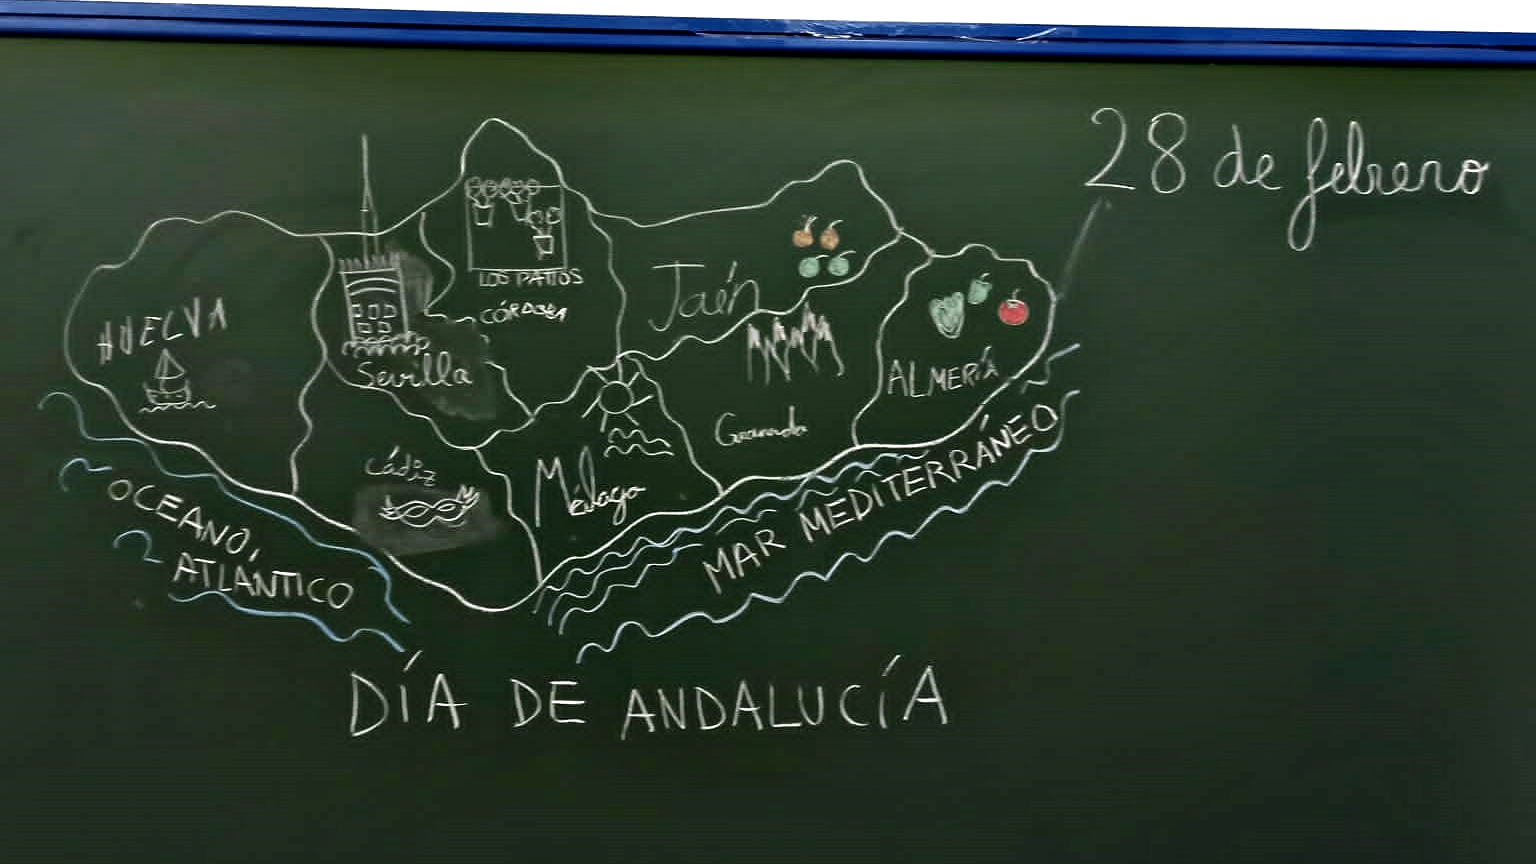 28 de febrero
LOS PATIOS
CÓRDOBA
Jaén
HUELVA
Sevilla
ALMERÍA
Granada
Cádiz
Málaga
OCEANO,
ATLÁNTICO
MAR MEDITERRÁNEO
DÍA DE ANDALUCÍA